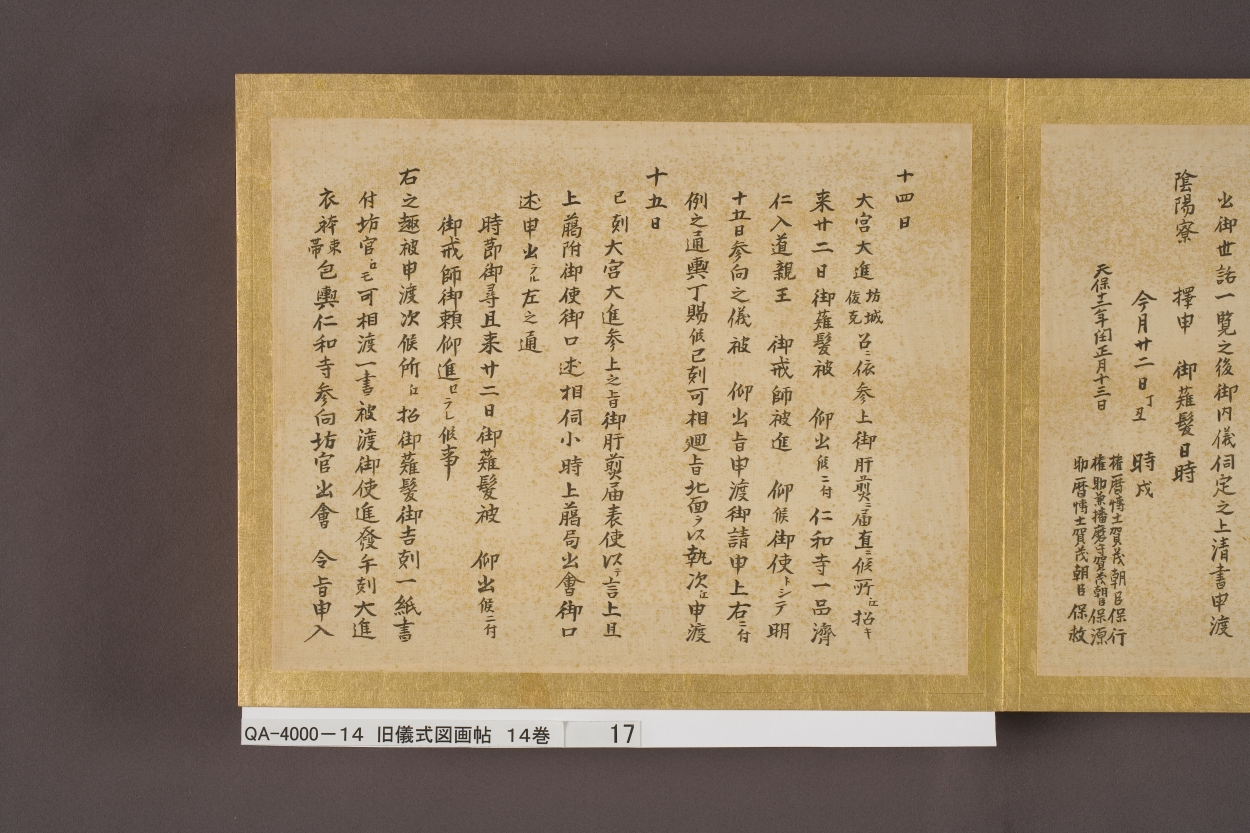 出御世話一覧之後御内儀伺定之上清書申渡
陰陽寮　擇申　御薙髪日時
今月廿二日丁丑　時戌
天保十二年閏正月十三日
権暦博士賀茂朝臣保行
権助兼播磨守賀茂朝臣保源
助暦博士賀茂朝臣保救
十四日
大宮大進坊城俊克召ニ依参上御肝煎ニ届直ニ候所江招キ
来廿二日御薙髪被　仰出候ニ付仁和寺一品濟
仁入道親王　御戒師被進　仰候御使トシテ明
十五日参向之儀被　仰出旨申渡御請申上右ニ付
例之通輿丁賜候巳刻可相廻旨北面ヲ以執次江申渡
十五日
巳刻大宮大進参上之旨御肝煎届表使以テ言上且
上﨟附御使御口述相伺小時上﨟局出會御口
述申出ラル左之通
時節御尋且来廿二日御薙髪被　仰出候ニ付
御戒師御頼仰進ロラレ候事
右之趣被申渡次候所江招御薙髪御吉刻一紙書
付坊官口モ可相渡一書被渡御使進發午刻大進
衣袴束帯包輿仁和寺参向坊官出會　令旨申入
QA-4000－14　旧儀式図画帖　14巻　17